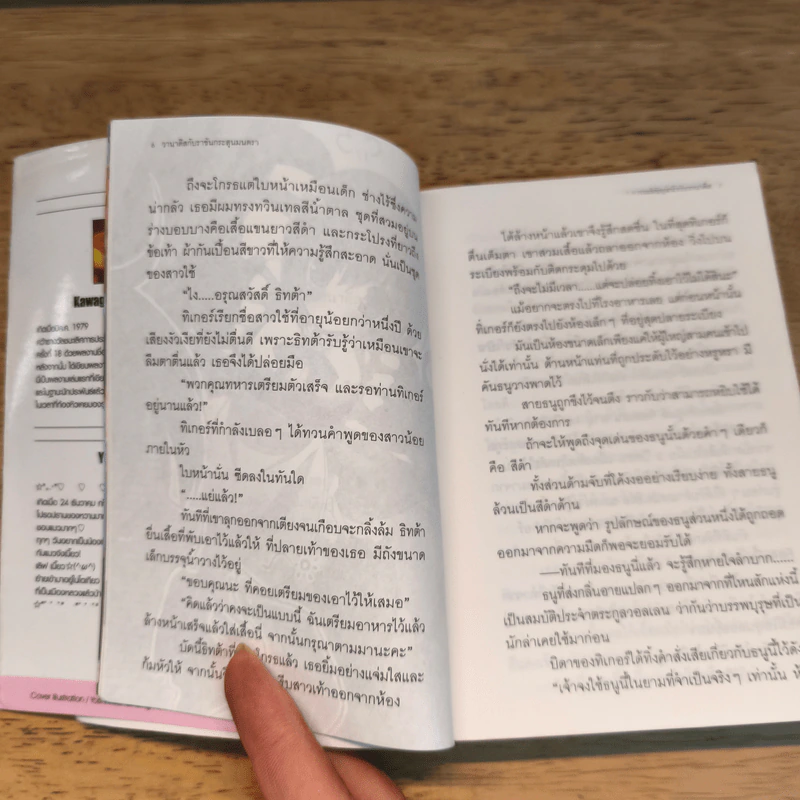 Kawag
เกิดเมื่อปีค.ศ. 1979
Y
เกิดเมื่อ 24 ธันวาคม
Cover Illustration /
6 วานาดีสกับราชันกระสุนมนตรา
ถึงจะโกรธแต่ใบหน้าเหมือนเด็ก ช่างไร้ซึ่งความ
น่ากลัว เธอมีผมทรงทวินเทลสีน้ำตาล ชุดที่สวมอยู่บน
ร่างบอบบางคือเสื้อแขนยาวสีดำ และกระโปรงที่ยาวถึง
ข้อเท้า ผ้ากันเปื้อนสีขาวที่ให้ความรู้สึกสะอาด นั่นเป็นชุด
ของสาวใช้
“ไง.....อรุณสวัสดิ์ ธิทต้า”
ทิเกอร์เรียกชื่อสาวใช้ที่อายุน้อยกว่าหนึ่งปี ด้วย
เสียงงัวเงียที่ยังไม่ตื่นดี เพราะธิทต้ารับรู้ว่าเหมือนเขาจะ
ลืมตาตื่นแล้ว เธอจึงได้ปล่อยมือ
“พวกคุณทหารเตรียมตัวเสร็จ และรอท่านทิเกอร์
อยู่นานแล้ว!”
ทิเกอร์ที่กำลังเบลอๆ ได้ทวนคำพูดของสาวน้อย
ภายในหัว
ใบหน้านั่น ซีดลงในทันใด
“.....แย่แล้ว!”
ทันทีที่เขาลุกออกจากเตียงจนเกือบจะกลิ้งล้ม ธิทต้า
ยื่นเสื้อที่พับเอาไว้แล้วให้ ที่ปลายเท้าของเธอ มีถังขนาด
เล็กบรรจุน้ำวางไว้อยู่
“ขอบคุณนะ ที่คอยเตรียมของเอาไว้ให้เสมอ”
“คิดแล้วว่าคงจะเป็นแบบนี้ ฉันเตรียมอาหารไว้แล้ว
ล้างหน้าเสร็จแล้วใส่เสื้อนี่ จากนั้นกรุณาตามมานะคะ”
บัดนี้ธิทต้าที่ โกรธแล้ว เธอยิ้มอย่างแจ่มใสและ
ก้มหัวให้ จากนั้น รีบสาวเท้าออกจากห้อง
ได้ล้างหน้าแล้วเขาจึงรู้สึกสดชื่น ในที่สุดทิเกอร์ก็
ตื่นเต็มตา เขาสวมเสื้อแล้วถลาออกจากห้อง วิ่งไปบน
ระเบียงพร้อมกับติดกระดุมไปด้วย
“ถึงจะไม่มีเวลา.....แต่จะปล่อยทิ้งเอาไว้ไม่ได้สินะ”
แม้อยากจะตรงไปที่โรงอาหารเลย แต่ก่อนหน้านั้น
ทิเกอร์ก็ยังตรงไปยังห้องเล็กๆ ที่อยู่สุดปลายระเบียง
มันเป็นห้องขนาดเล็กเพียงแค่ให้ผู้ใหญ่สามคนเข้าไป
นั่งได้เท่านั้น ด้านหน้าแท่นที่ถูกประดับไว้อย่างหรูหรา มี
คันธนูวางพาดไว้
สายธนูถูกขึงไว้จนตึง ราวกับว่าสามารถหยิบใช้ได้
ทันทีหากต้องการ
ถ้าจะให้พูดถึงจุดเด่นของธนูนั้นด้วยคำๆ เดียวก็
คือ สีดำ
ทั้งส่วนด้ามจับที่โค้งงออย่างเรียบง่าย ทั้งสายธนู
ล้วนเป็นสีดำด้าน
หากจะพูดว่า รูปลักษณ์ของธนูส่วนหนึ่งได้ถูกถอด
ออกมาจากความมืดก็พอจะยอมรับได้
——ทันทีที่มองธนูนี่แล้ว จะรู้สึกหายใจลำบาก.....
ธนูที่ส่งกลิ่นอายแปลกๆ ออกมาจากที่ไหนสักแห่งนี้
เป็นสมบัติประจำตระกูลวอลเลน ว่ากันว่าบรรพบุรุษที่เป็น
นักล่าเคยใช้มาก่อน
บิดาของทิเกอร์ได้ทิ้งคำสั่งเสียเกี่ยวกับธนูนี้ไว้ดัง
“เจ้าจงใช้ธนูนี้ในยามที่จำเป็นจริงๆ เท่านั้น